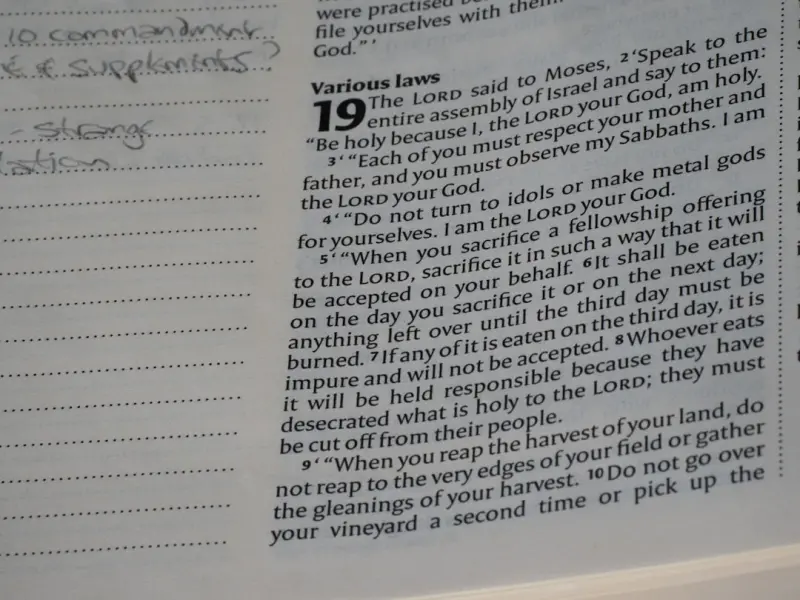 10 commandment
& supplements?
- strange
were practised
file yourselves with them.
God.”’
Various laws
19 The LORD said to Moses, 2‘Speak to the
entire assembly of Israel and say to them:
“Be holy because I, the LORD your God, am holy.
3‘“Each of you must respect your mother and
father, and you must observe my Sabbaths. I am
the LORD your God.
4‘“Do not turn to idols or make metal gods
for yourselves. I am the LORD your God.
5‘“When you sacrifice a fellowship offering
to the LORD, sacrifice it in such a way that it will
be accepted on your behalf. 6It shall be eaten
on the day you sacrifice it or on the next day;
anything left over until the third day must be
burned. 7If any of it is eaten on the third day, it is
impure and will not be accepted. 8Whoever eats
it will be held responsible because they have
desecrated what is holy to the LORD; they must
be cut off from their people.
9‘“When you reap the harvest of your land, do
not reap to the very edges of your field or gather
the gleanings of your harvest. 10Do not go over
your vineyard a second time or pick up the